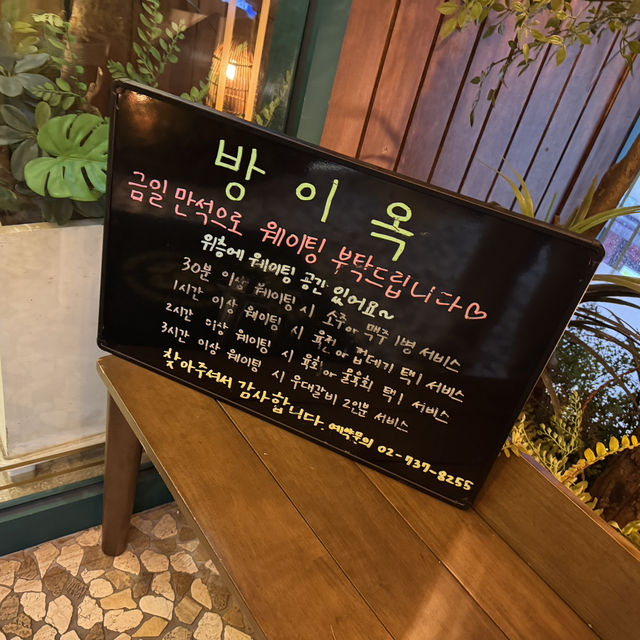 방이옥
금일 만석으로 웨이팅 부탁드립니다♡
위층에 웨이팅 공간 있어요~
30분 이상 웨이팅 시 소주or 맥주 1병 서비스
1시간 이상 웨이팅 시 육전or 택1 서비스
2시간 이상 웨이팅 시 육회or 물육회 택1 서비스
3시간 이상 웨이팅 시 우대갈비 2인분 서비스
찾아주셔서 감사합니다. 예약문의 02-737-8255